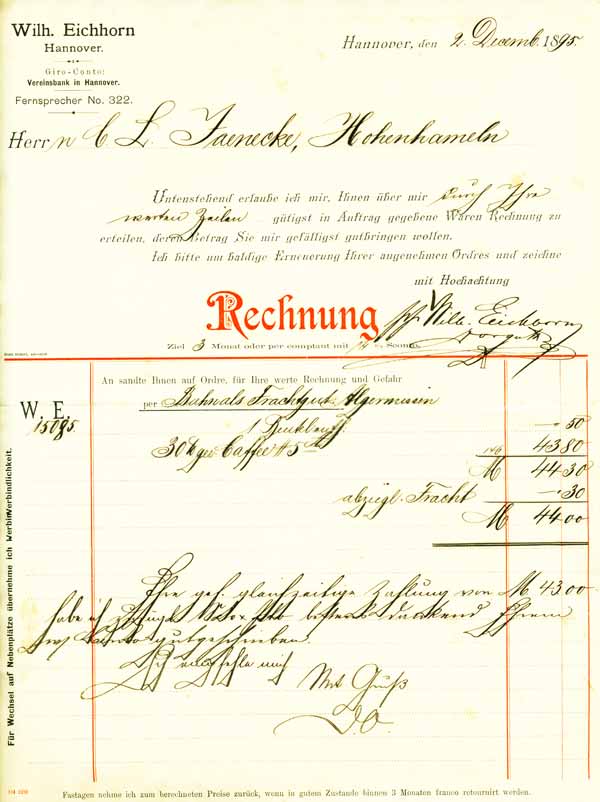 Wilh. Eichhorn
Hannover.
Giro-Conto:
Vereinsbank in Hannover.
Fernsprecher No. 322.
Hannover, den 2. Decemb. 1895.
Herrn C. L. Jaenecke, Hohenhameln
Untenstehend erlaube ich mir, Ihnen über mir durch Ihre
werten Zeilen gütigst in Auftrag gegebene Waren Rechnung zu
erteilen, deren Betrag Sie mir gefälligst gutbringen wollen.
Ich bitte um baldige Erneuerung Ihrer angenehmen Ordres und zeichne
mit Hochachtung
Rechnung
Wilh. Eichhorn
Ziel 3 Monat oder per comptant mit % Sconto.
An sandte Ihnen auf Ordre, für Ihre werte Rechnung und Gefahr
per Bahn als Frachtgut Algermissen
W. E.
15095
1 —.50
30 Kg Caffee 146 43 80
M 44 30
abzügl. Fracht —.30
M 44 00
Ihre gef. gleichzeitige Zahlung von M 43.00
habe ich dankend Ihrem
Conto gutgeschrieben.
empfehle mich
Mit Gruß
D. O.
Für Wechsel auf Nebenplätze übernehme ich keine Verbindlichkeit.
Fastagen nehme ich zum berechneten Preise zurück, wenn in gutem Zustande binnen 3 Monaten franco retournirt werden.